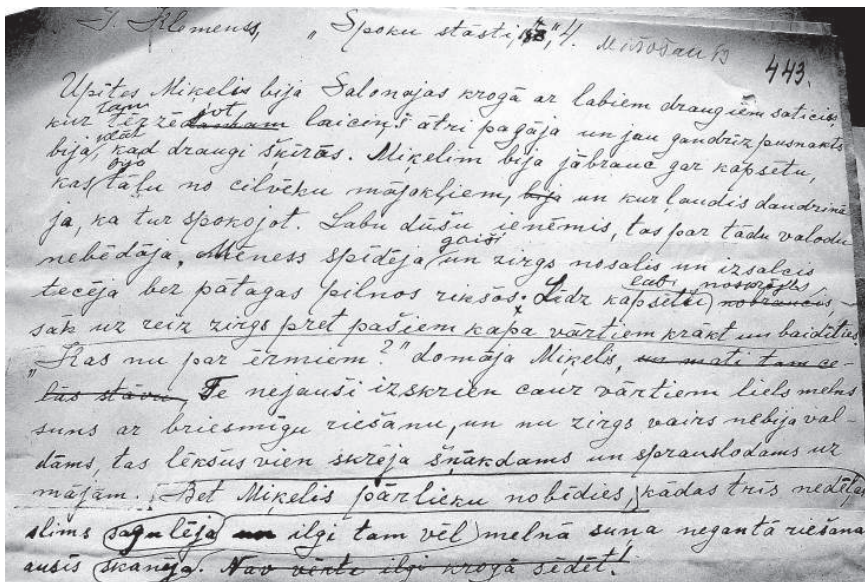 J. Klemenss, „Spoku stāsti", 4. 443.
Upītes Miķelis bija Salonajas krogā ar labiem draugiem saticis,
tam jot
kur tērzēdambam laiciņš ātri pagāja un jau gandrīz pusnakts
vēlāt
bija, kad draugi šķīrās. Miķelim bija jābrauc gar kapsētu,
bija
kas tālu no cilvēku mājokļiem, bija un kur ļaudis daudzinā
ja, ka tur spokojot. Labu dūšu ieņēmis, tas par tādu valodu
gaiši
nebēdāja. Mēness spīdēja un zirgs nosalis un izsalcis
tecēja bez pātagas pilnos rikšos. Līdz kapsētai nobraucis,
sāk uz reiz zirgs pret pašiem kapa vārtiem krākt un baidīties
„Kas nu par ērmiem?" domāja Miķelis, un mati tam ce-
lās stāvu. Te nejauši izskrien caur vārtiem liels melns
suns ar briesmīgu riešanu, un nu zirgs vairs nebija val-
dāms, tas lēkšus vien skrēja šņākdams un sprauslodams uz
mājām. Bet Miķelis pārlieku nobēdies, kādas trīs nedēļas
slims sagulēja un ilgi tam vēl melnā suna negantā riešana
ausīs skanēja. Nav vērts ilgi krogā sēdēt!